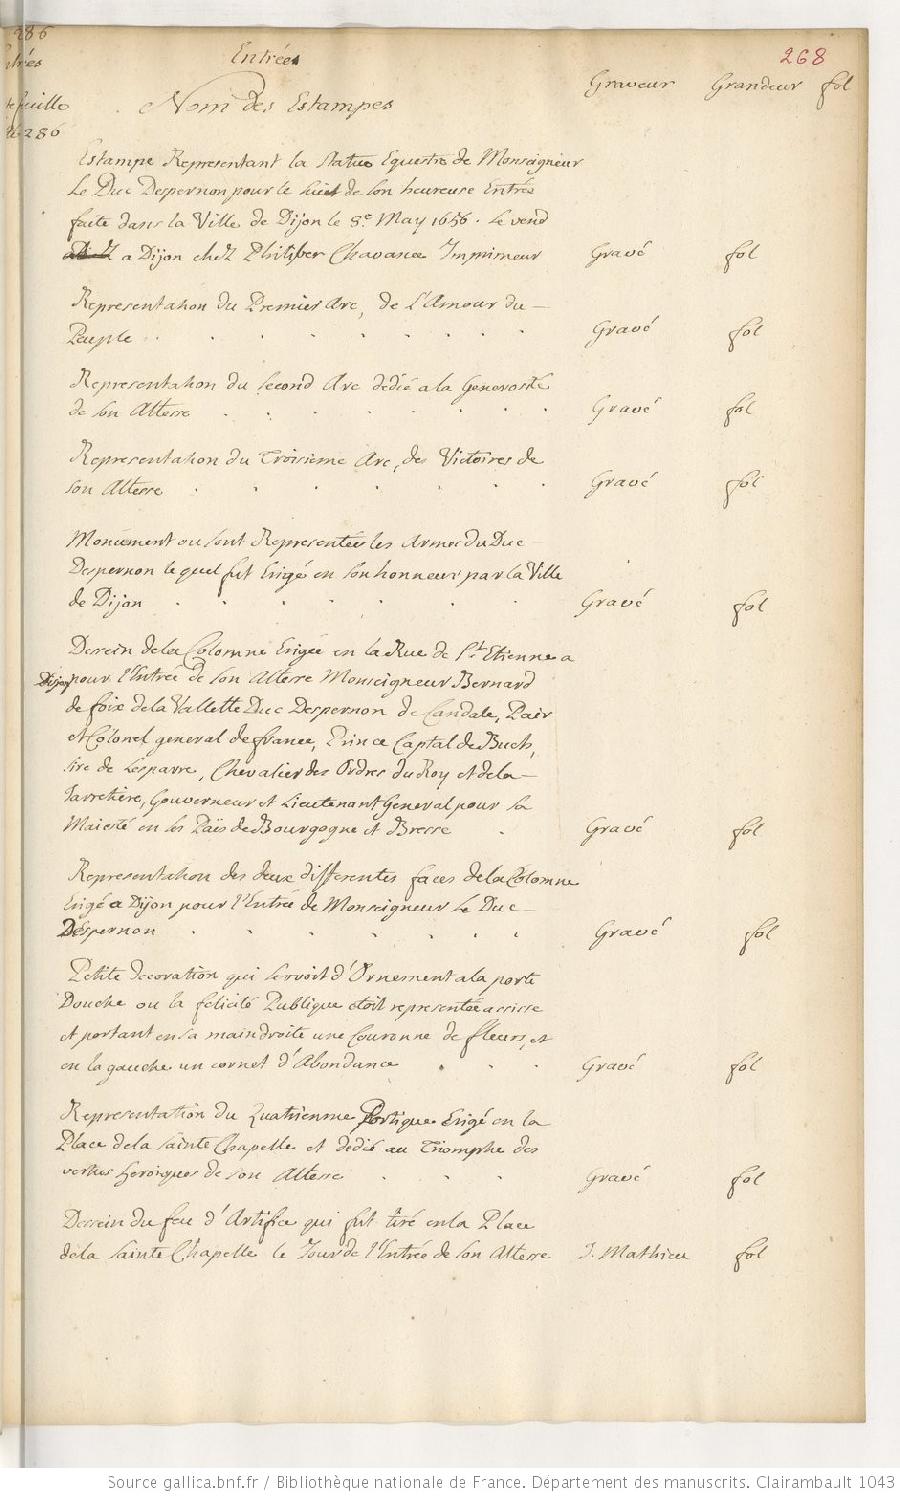 286
Entrées
268
Graveur Grandeur fol
Nom des Estampes
286
Estampe Representant la Statue Equestre de Monseigneur
Le Duc Despernon pour le de son heureuse Entrée
faite dans la Ville de Dijon le 8e. May 1656. Se vend
a Dijon chez Philiber Chavance Imprimeur Gravé fol
Representation du Premier Arc, de L'Amour du
Peuple Gravé fol
Representation du Second Arc dedié a la Generosité
de Son Altesse Gravé fol
Representation du Troisieme Arc, des Victoires de
son Altesse Gravé fol
Monument ou sont Representées les Armes du Duc
Despernon le quel fut Erigé en son honneur par la Ville
de Dijon Gravé fol
Dessein de la Colomne Erigée en la Rue de St. Etienne a
Dijon pour l'Entrée de Son Altesse Monseigneur Bernard
de foix de la Vallette Duc Despernon de Candale, Pair
et Colonel general de france, Prince Captal de Buch,
sire de Lesparre, Chevalier des Ordres du Roy et de la
Jarretiere, Gouverneur et Lieutenant General pour Sa
Majesté en les Païs de Bourgogne et Bresse Gravé fol
Representation des deux differentes faces de la Colomne
Erigé a Dijon pour l'Entrée de Monseigneur Le Duc
Despernon Gravé fol
Petite decoration qui servoit d'Ornement a la porte
Douche ou la felicité Publique etoit representée assise
et portant en sa main droite une Couronne de fleurs, et
en la gauche un cornet d'Abondance Gravé fol
Representation du Quatrieme Portique Erigé en la
Place de la Sainte Chapelle et dedié au Triomphe des
vertus heroiques de son Altesse Gravé fol
Dessein du feu d'Artifice qui fut tiré en la Place
de la Sainte Chapelle le Jour de l'Entrée de Son Altesse J. Mathieu fol
Source gallica.bnf.fr / Bibliothèque nationale de France. Département des manuscrits. Clairambault 1043